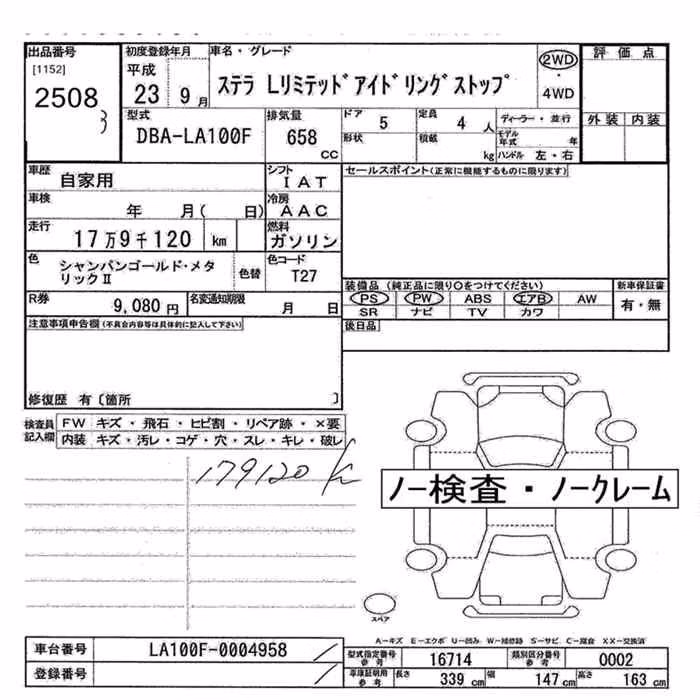 出品番号 初度登録年月 車名・グレード 評価点
[1152] 平成 2WD
2508 23 9月 ステラ Lリミテッドアイドリングストップ ・
4WD
型式 排気量 ドア 5 定員 4 人 ディーラー・並行 外装 内装
DBA-LA100F 658 cc 形状 積載 kg モデル年式 年
ハンドル 左・右
車歴 自家用 シフト IAT セールスポイント(正常に機能するものに限ります)
車検 年 月( 日) 冷房 AAC
走行 17万9千120 km 燃料 ガソリン
色 シャンパンゴールド・メタリックⅡ 色替 色コード T27
装備品 (純正品に限り○をつけてください) 新車保証書
R券 9,080円 名変通知期限 月 日 PS PW ABS エアB AW 有・無
SR ナビ TV カワ
注意事項申告欄(不具合内容等は具体的に記入して下さい) 後日品
修復歴 有〔箇所 〕
検査員記入欄 FW キズ・飛石・ヒビ割・リペア跡・×要
内装 キズ・汚レ・コゲ・穴・スレ・キレ・破レ
179120 K
ノー検査・ノークレーム
スペア
A-キズ E-エクボ U-凹み W-補修跡 S-サビ C-腐食 XX-交換済
車台番号 LA100F-0004958 型式指定番号 参考 16714 類別区分番号 参考 0002
登録番号 車庫証明用 参考 長さ 339 cm 幅 147 cm 高さ 163 cm